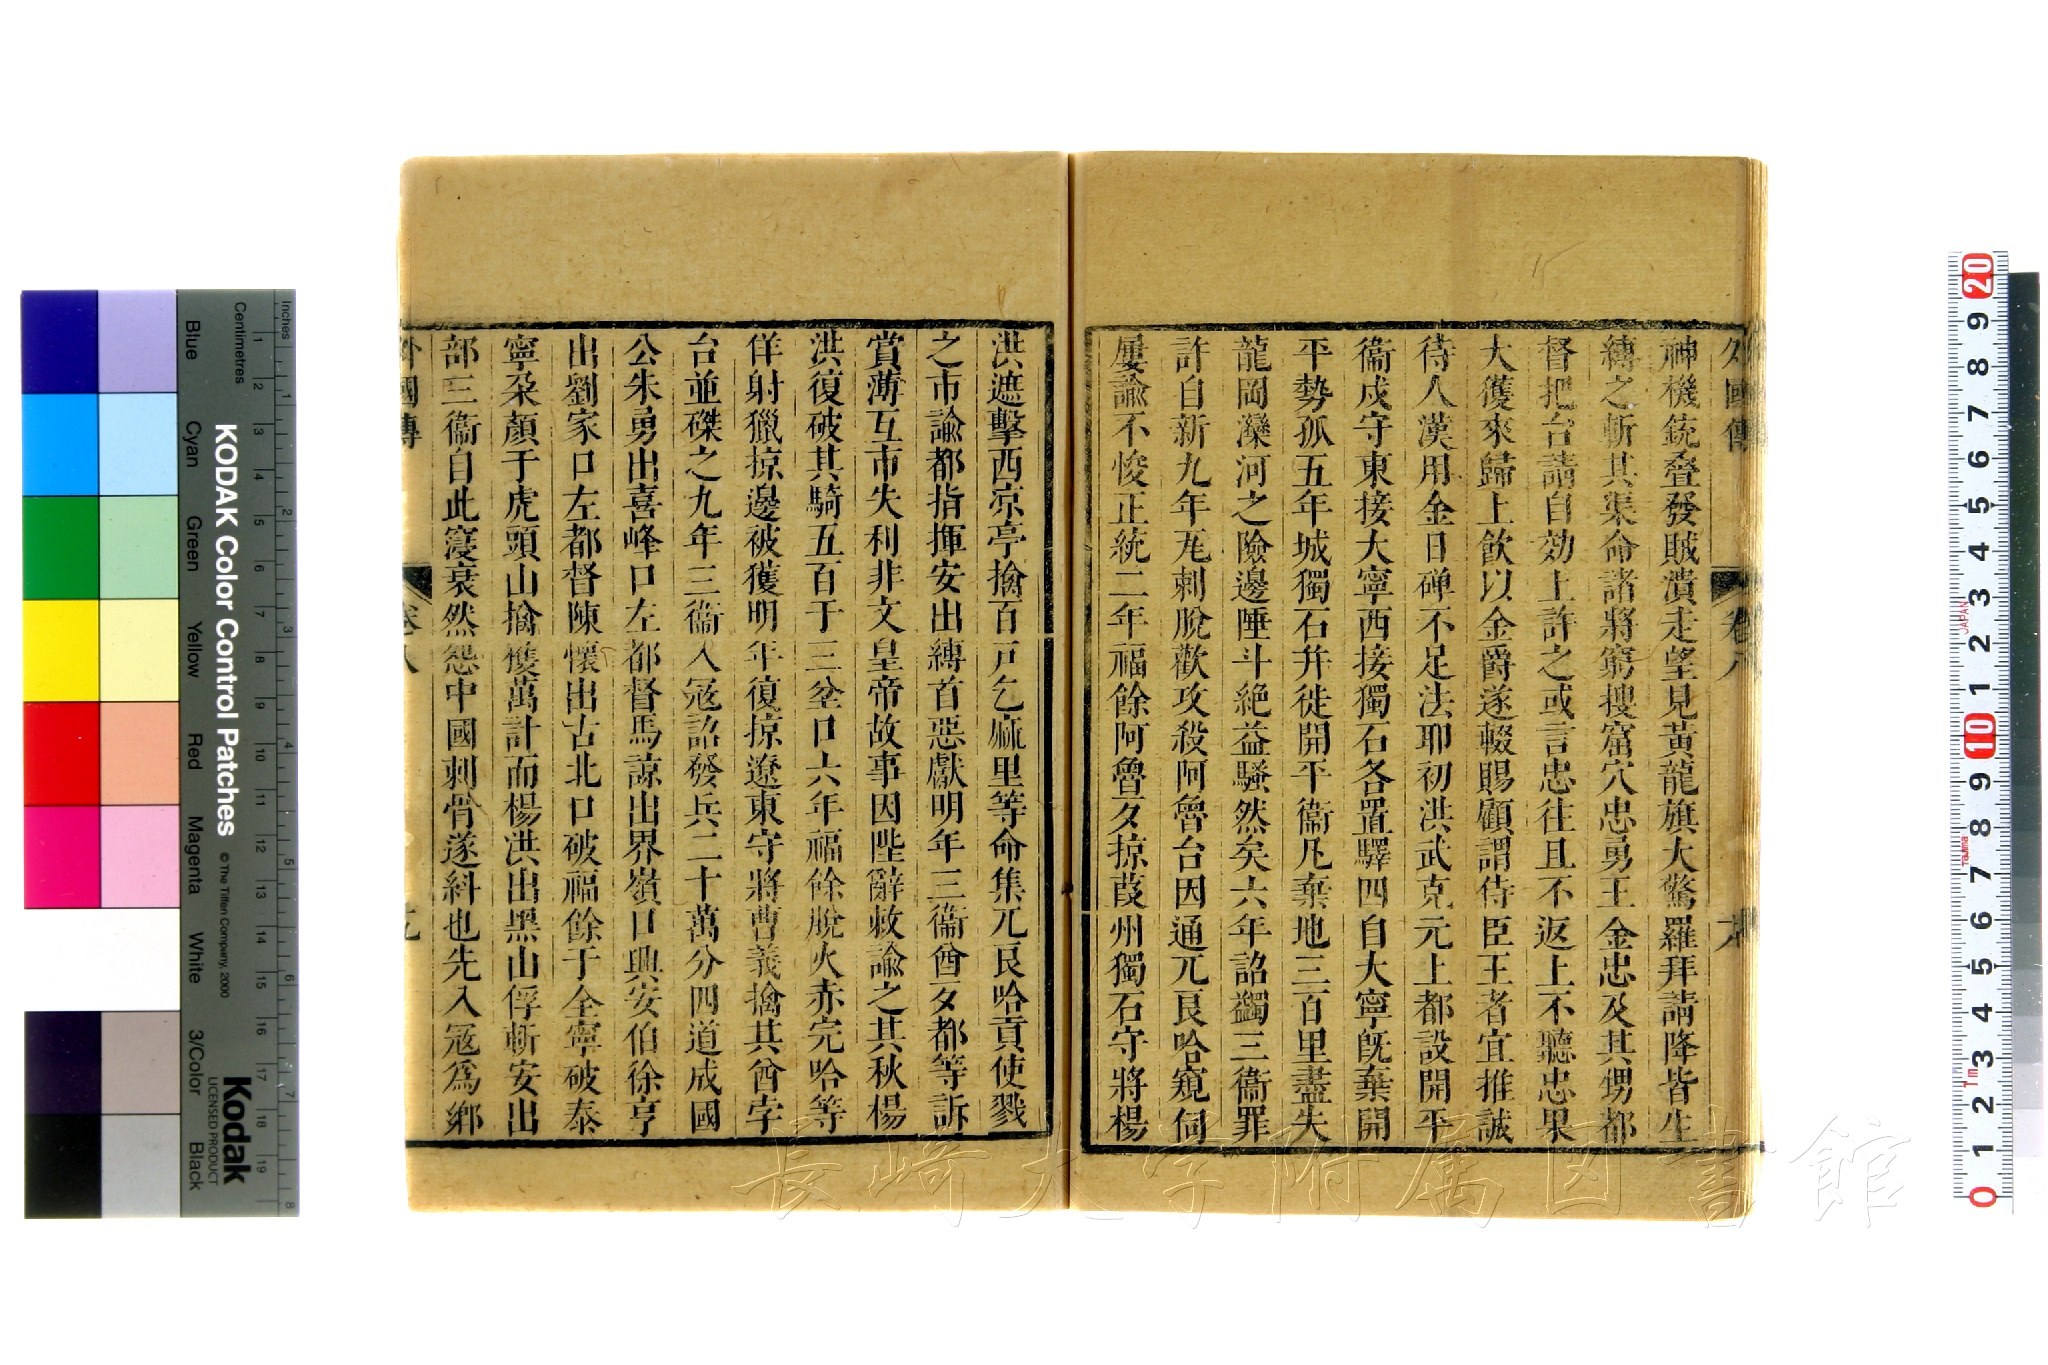 外國傳 卷八
神機銃叠發賊潰走望見黃龍旗大驚羅拜請降皆生
縛之斬其渠命諸將窮搜窟穴忠勇王金忠及其甥都
督把台請自効上許之或言忠往且不返上不聽忠果
大獲來歸上飲以金爵遂輟賜顧謂侍臣王者宜推誠
待人漢用金日磾不足法耶初洪武克元上都設開平
衞戍守東接大寧西接獨石各置驛四自大寧旣棄開
平勢孤五年城獨石幷徙開平衞凡棄地三百里盡失
龍岡灤河之險邊陲斗絕益騷然矣六年詔蠲三衞罪
許自新九年兀剌脫歡攻殺阿魯台因通兀良哈窺伺
屢諭不悛正統二年福餘阿魯歹掠葭州獨石守將楊
洪遮擊西凉亭擒百戶乞麻里等命集兀良哈貢使戮
之市諭都指揮安出縛首惡獻明年三衞酋歹都等訴
賞薄互市失利非文皇帝故事因陛辭敕諭之其秋楊
洪復破其騎五百于三岔口六年福餘脫火赤完哈等
佯射獵掠邊被獲明年復掠遼東守將曹義擒其酋孛
台並磔之九年三衞入寇詔發兵二十萬分四道成國
公朱勇出喜峰口左都督馬諒出界嶺口興安伯徐亨
出劉家口左都督陳懷出古北口破福餘于全寧破泰
寧朶顏于虎頭山擒獲萬計而楊洪出黑山俘斬安出
部三衞自此寖衰然怨中國刺骨遂糾也先入寇爲鄉
外國傳 卷八
KODAK Color Control Patches
© The Tiffen Company, 2000
Kodak
LICENSED PRODUCT
Inches
Centimetres
1 2 3 4 5 6 7 8
1 2 3 4 5 6 7 8 9 10 11 12 13 14 15 16 17 18 19
Blue Cyan Green Yellow Red Magenta White 3/Color Black
20 9 8 7 6 5 4 3 2 1 10 9 8 7 6 5 4 3 2 1 0
JAPAN
Tajima
長崎大学附属図書館